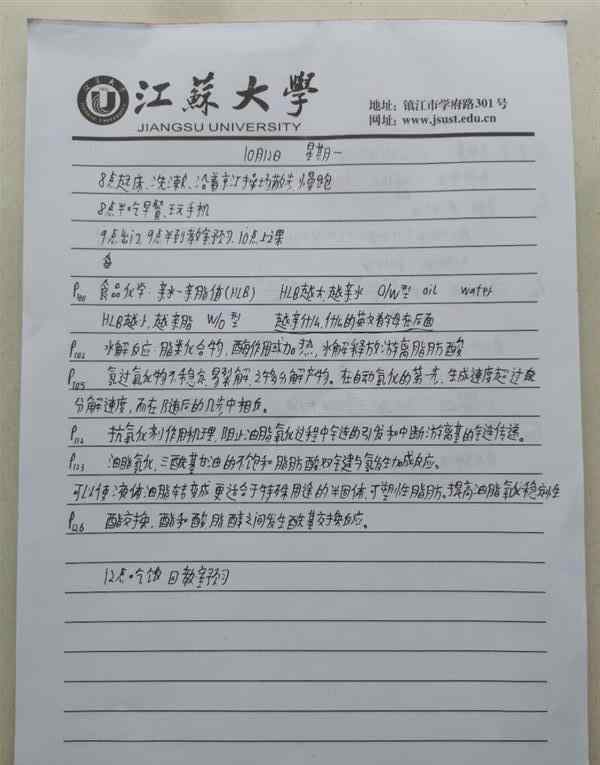 江蘇大學
JIANGSU UNIVERSITY
地址: 镇江市学府路301号
网址: www.jsust.edu.cn
10月12日 星期一
8点起床、洗漱、沿着操场散步、慢跑
8点半吃早餐、玩手机
9点出门, 9点半到教室预习, 10点上课
P100 食品化学: 亲水-亲脂值(HLB) HLB越大,越亲水 O/W型 oil water
HLB越小,越亲脂 W/O型 越亲什么,什么的英文首字母在后面
P102 水解反应:脂类化合物,酶作用或加热,水解释放游离脂肪酸
P105 氢过氧化物不稳定,易裂解,产生分解产物。在自动氧化的第一步,生成速度超过
分解速度,而在随后的几步中相反。
P114 抗氧化剂作用机理,阻止油脂氧化过程中链的引发和中断游离基的链传递。
P123 油脂氢化,三酰基甘油的不饱和脂肪酸双键与氢发生加成反应。
可以使液体油脂转变成更适合于特殊用途的半固体,可塑性脂肪。提高油脂氧化稳定性
P126 酯交换,酯和酸,脂醇之间发生酰基交换反应。
12点吃饭 回教室预习